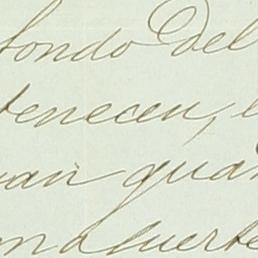 fondo del
tenecen,
van gua
una suerte